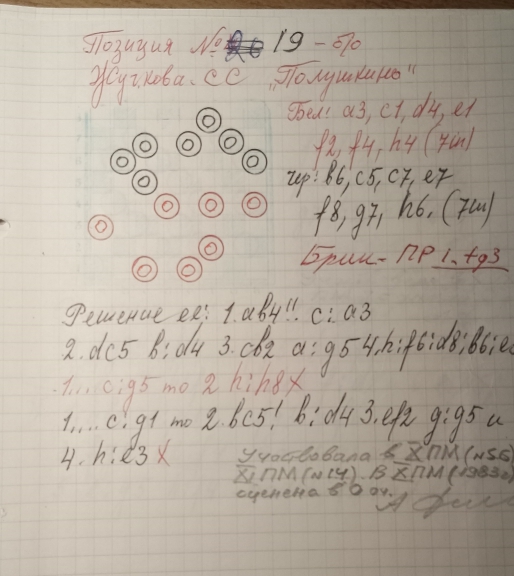 Позиция № 19 – б/о
Жучкова. С С „Полушкинъ"
Бел: а3, с1, d4, e1
f2, f4, h4 (7ш)
чер: в6, с5, с7, е7
f8, g7, h6. (7ш)
Решение её: 1. ab4!! c:a3
2. dc5 b:d4 3. cb2 a:g5 4. h:f6:d8:b6:e
1.... c:g5 то 2. h:h8X
1.... c:g1 то 2. bc5! b:d4 3. ef2 g:g5 и
4. h:e3 X
Участвовала в X ПМ (№56)
XI ПМ (№14). В X ПМ (1983г)
оценена в 0 оч.